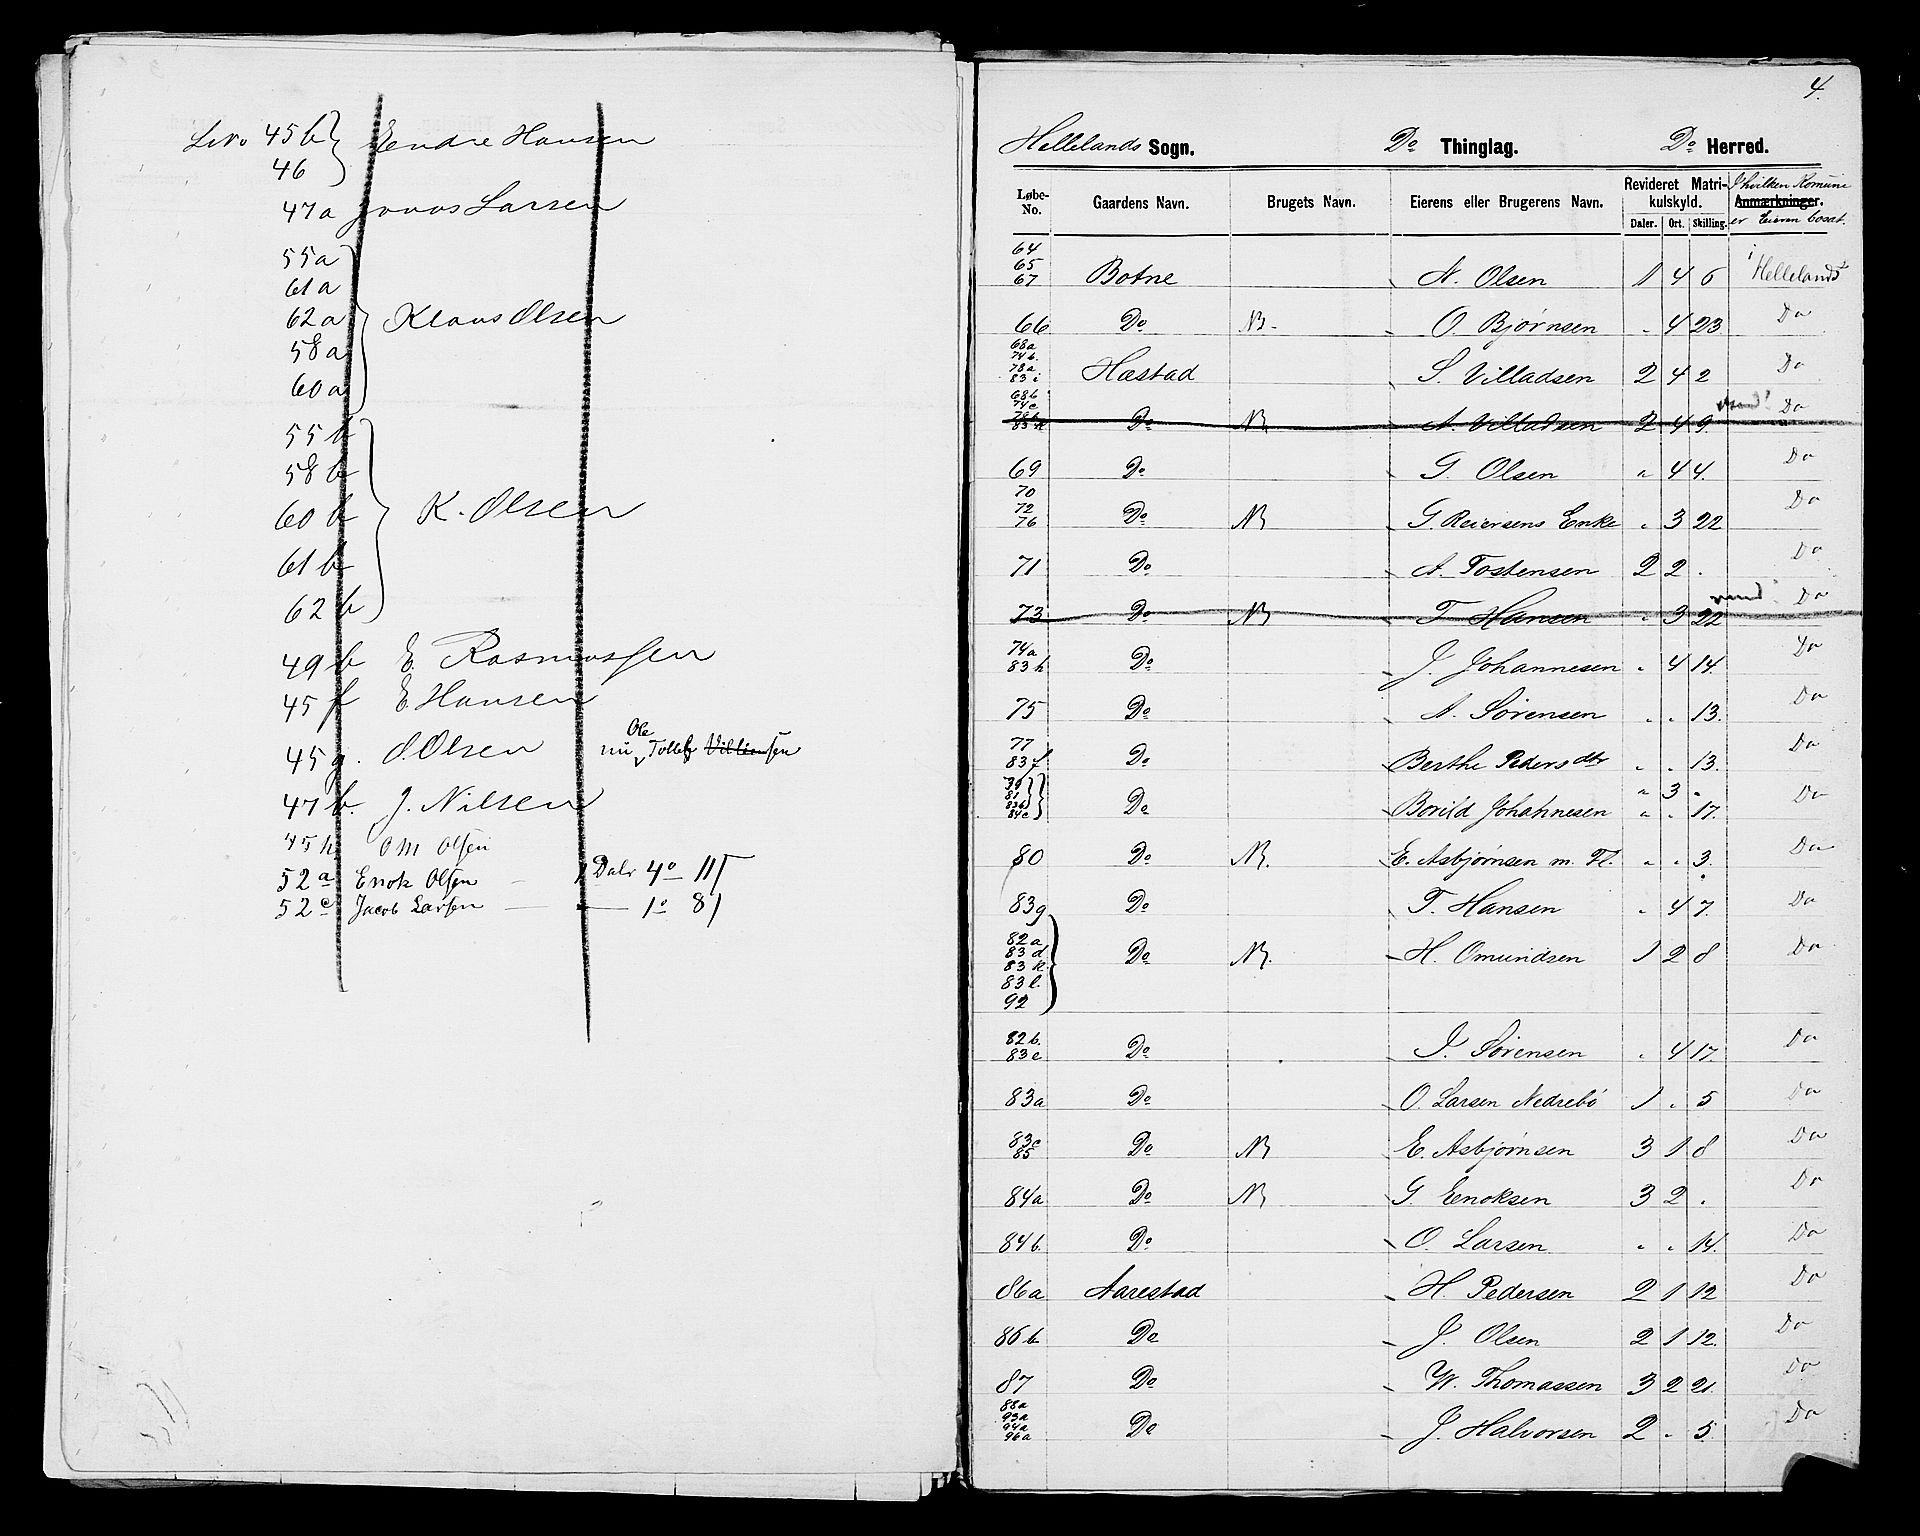 45b Endre Hansen
46
47a Jonas Larsen
55a
61a
62a Klaus Olsen
58a
60a
55b
58b
60b K. Olsen
61b
62b
49b E. Rasmussen
45f E Hansen
45g. O. Olsen nu Ole Tollef
47b. J. Nilsen
45h OM Olsen
52a Enok Olsen — 1 Daler 4o 11
52c Jacob Larsen — 1o 8
4.
Hellelands Sogn. Do Thinglag. Do Herred.
Løbe-No. Gaardens Navn. Brugets Navn. Eierens eller Brugerens Navn. Revideret Matrikulskyld. Anmærkninger. I hvilken Komune er Eieren bosat.
Daler. Ort. Skilling.
64 65 67 Botne N. Olsen 1 4 6 Hellelands
66 Do NB O. Bjørnsen " 4 23 Do
68a 74b. 78a 83i Hæstad S. Villadsen 2 4 2 Do
68b 74c 78b 83k Do NB A. Villadsen 2 4 9 Do
69 Do G. Olsen " 4 4. Do
70 72 76 Do NB G. Reiersens Enke " 3 22 Do
71 Do A. Tostensen 2 2 . Do
73 Do NB T. Hansen " 3 22 Do
74a 83h Do J. Johannesen " 4 14. Do
75 Do A. Sørensen " " 13. Do
77 83f Do Berthe Pedersdtr " " 13. Do
79 81 83b 84c Do Borild Johannesen " 3 " " " 17. Do
80 Do NB. E. Asbjørnsen m. Fl. " " 3. Do
83g Do T. Hansen " 4 7. Do
82a 83d 83k 83l. 92 Do NB. H. Omundsen 1 2 8 Do
82b. 83e Do I. Sørensen " 4 17. Do
83a Do O. Larsen Nedrebø 1 " 5 Do
83c 85 Do NB E. Asbjørnsen 3 1 8 Do
84a Do NB G. Eenoksen 3 2 . Do
84b. Do O. Larsen " " 14. Do
86a Aarestad H. Pedersen 2 1 12 Do
86b Do J. Olsen 2 1 12. Do
87 Do W. Thomassen 3 2 21. Do
88a 93a 94a 96a Do J. Halvorsen 2 " 5. Do